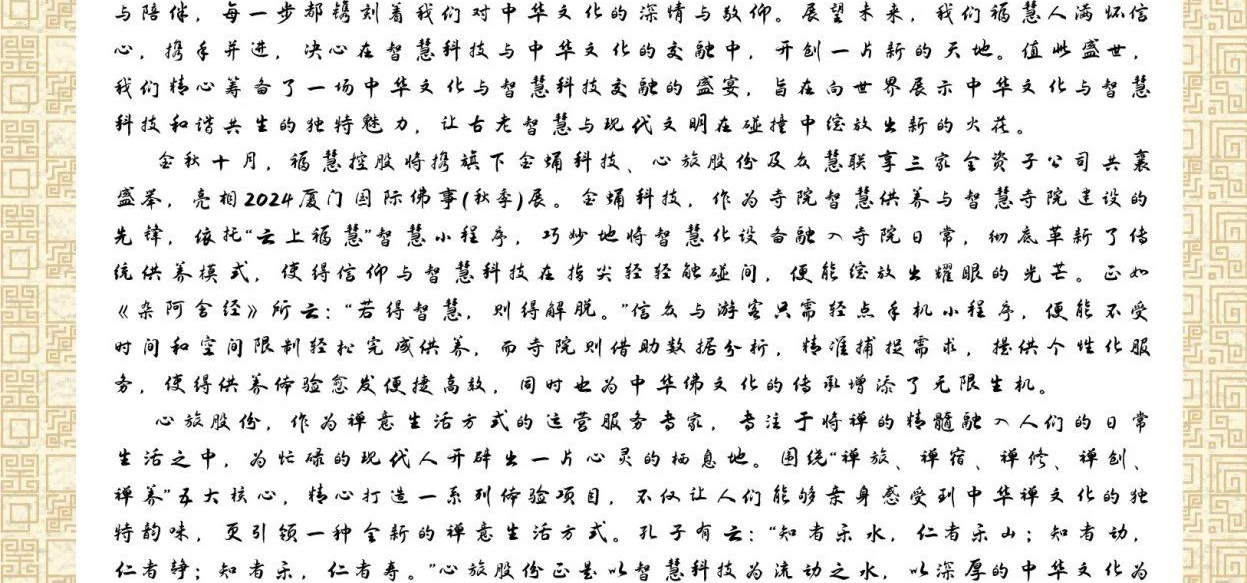 与陪伴，每一步都镌刻着我们对中华文化的深情与敬仰。展望未来，我们福慧人满怀信
心，携手并进，决心在智慧科技与中华文化的交融中，开创一片新的天地。值此盛世，
我们精心筹备了一场中华文化与智慧科技交融的盛宴，旨在向世界展示中华文化与智慧
科技和谐共生的独特魅力，让古老智慧与现代文明在碰撞中绽放出新的火花。
金秋十月，福慧控股将携旗下金蛹科技、心旅股份及众慧联享三家全资子公司共襄
盛举，亮相2024厦门国际佛事(秋季)展。金蛹科技，作为寺院智慧供养与智慧寺院建设的
先锋，依托“云上福慧”智慧小程序，巧妙地将智慧化设备融入寺院日常，彻底革新了传
统供养模式，使得信仰与智慧科技在指尖轻轻触碰间，便能绽放出耀眼的光芒。正如
《杂阿含经》所云：“若得智慧，则得解脱。”信众与游客只需轻点手机小程序，便能不受
时间和空间限制轻松完成供养，而寺院则借助数据分析，精准捕捉需求，提供个性化服
务，使得供养体验愈发便捷高效，同时也为中华佛文化的传承增添了无限生机。
心旅股份，作为禅意生活方式的运营服务专家，专注于将禅的精髓融入人们的日常
生活之中，为忙碌的现代人开辟出一片心灵的栖息地。围绕“禅旅、禅宿、禅修、禅创、
禅养”五大核心，精心打造一系列体验项目，不仅让人们能够亲身感受到中华禅文化的独
特韵味，更引领一种全新的禅意生活方式。孔子有云：“知者乐水，仁者乐山；知者动，
仁者静；知者乐，仁者寿。”心旅股份正是以智慧科技为流动之水，以深厚的中华文化为